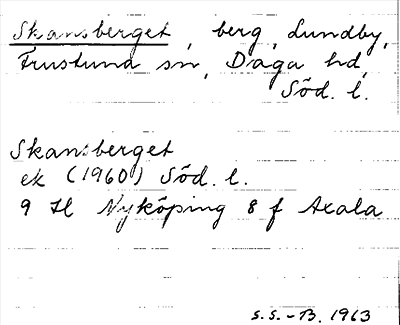 Skansberget, berg, Lundby,
Frustuna sn, Daga hd,
Söd. l.
Skansberget
ek (1960) Söd. l.
9 H Nyköping 8 f Axala
S.S.-B. 1963